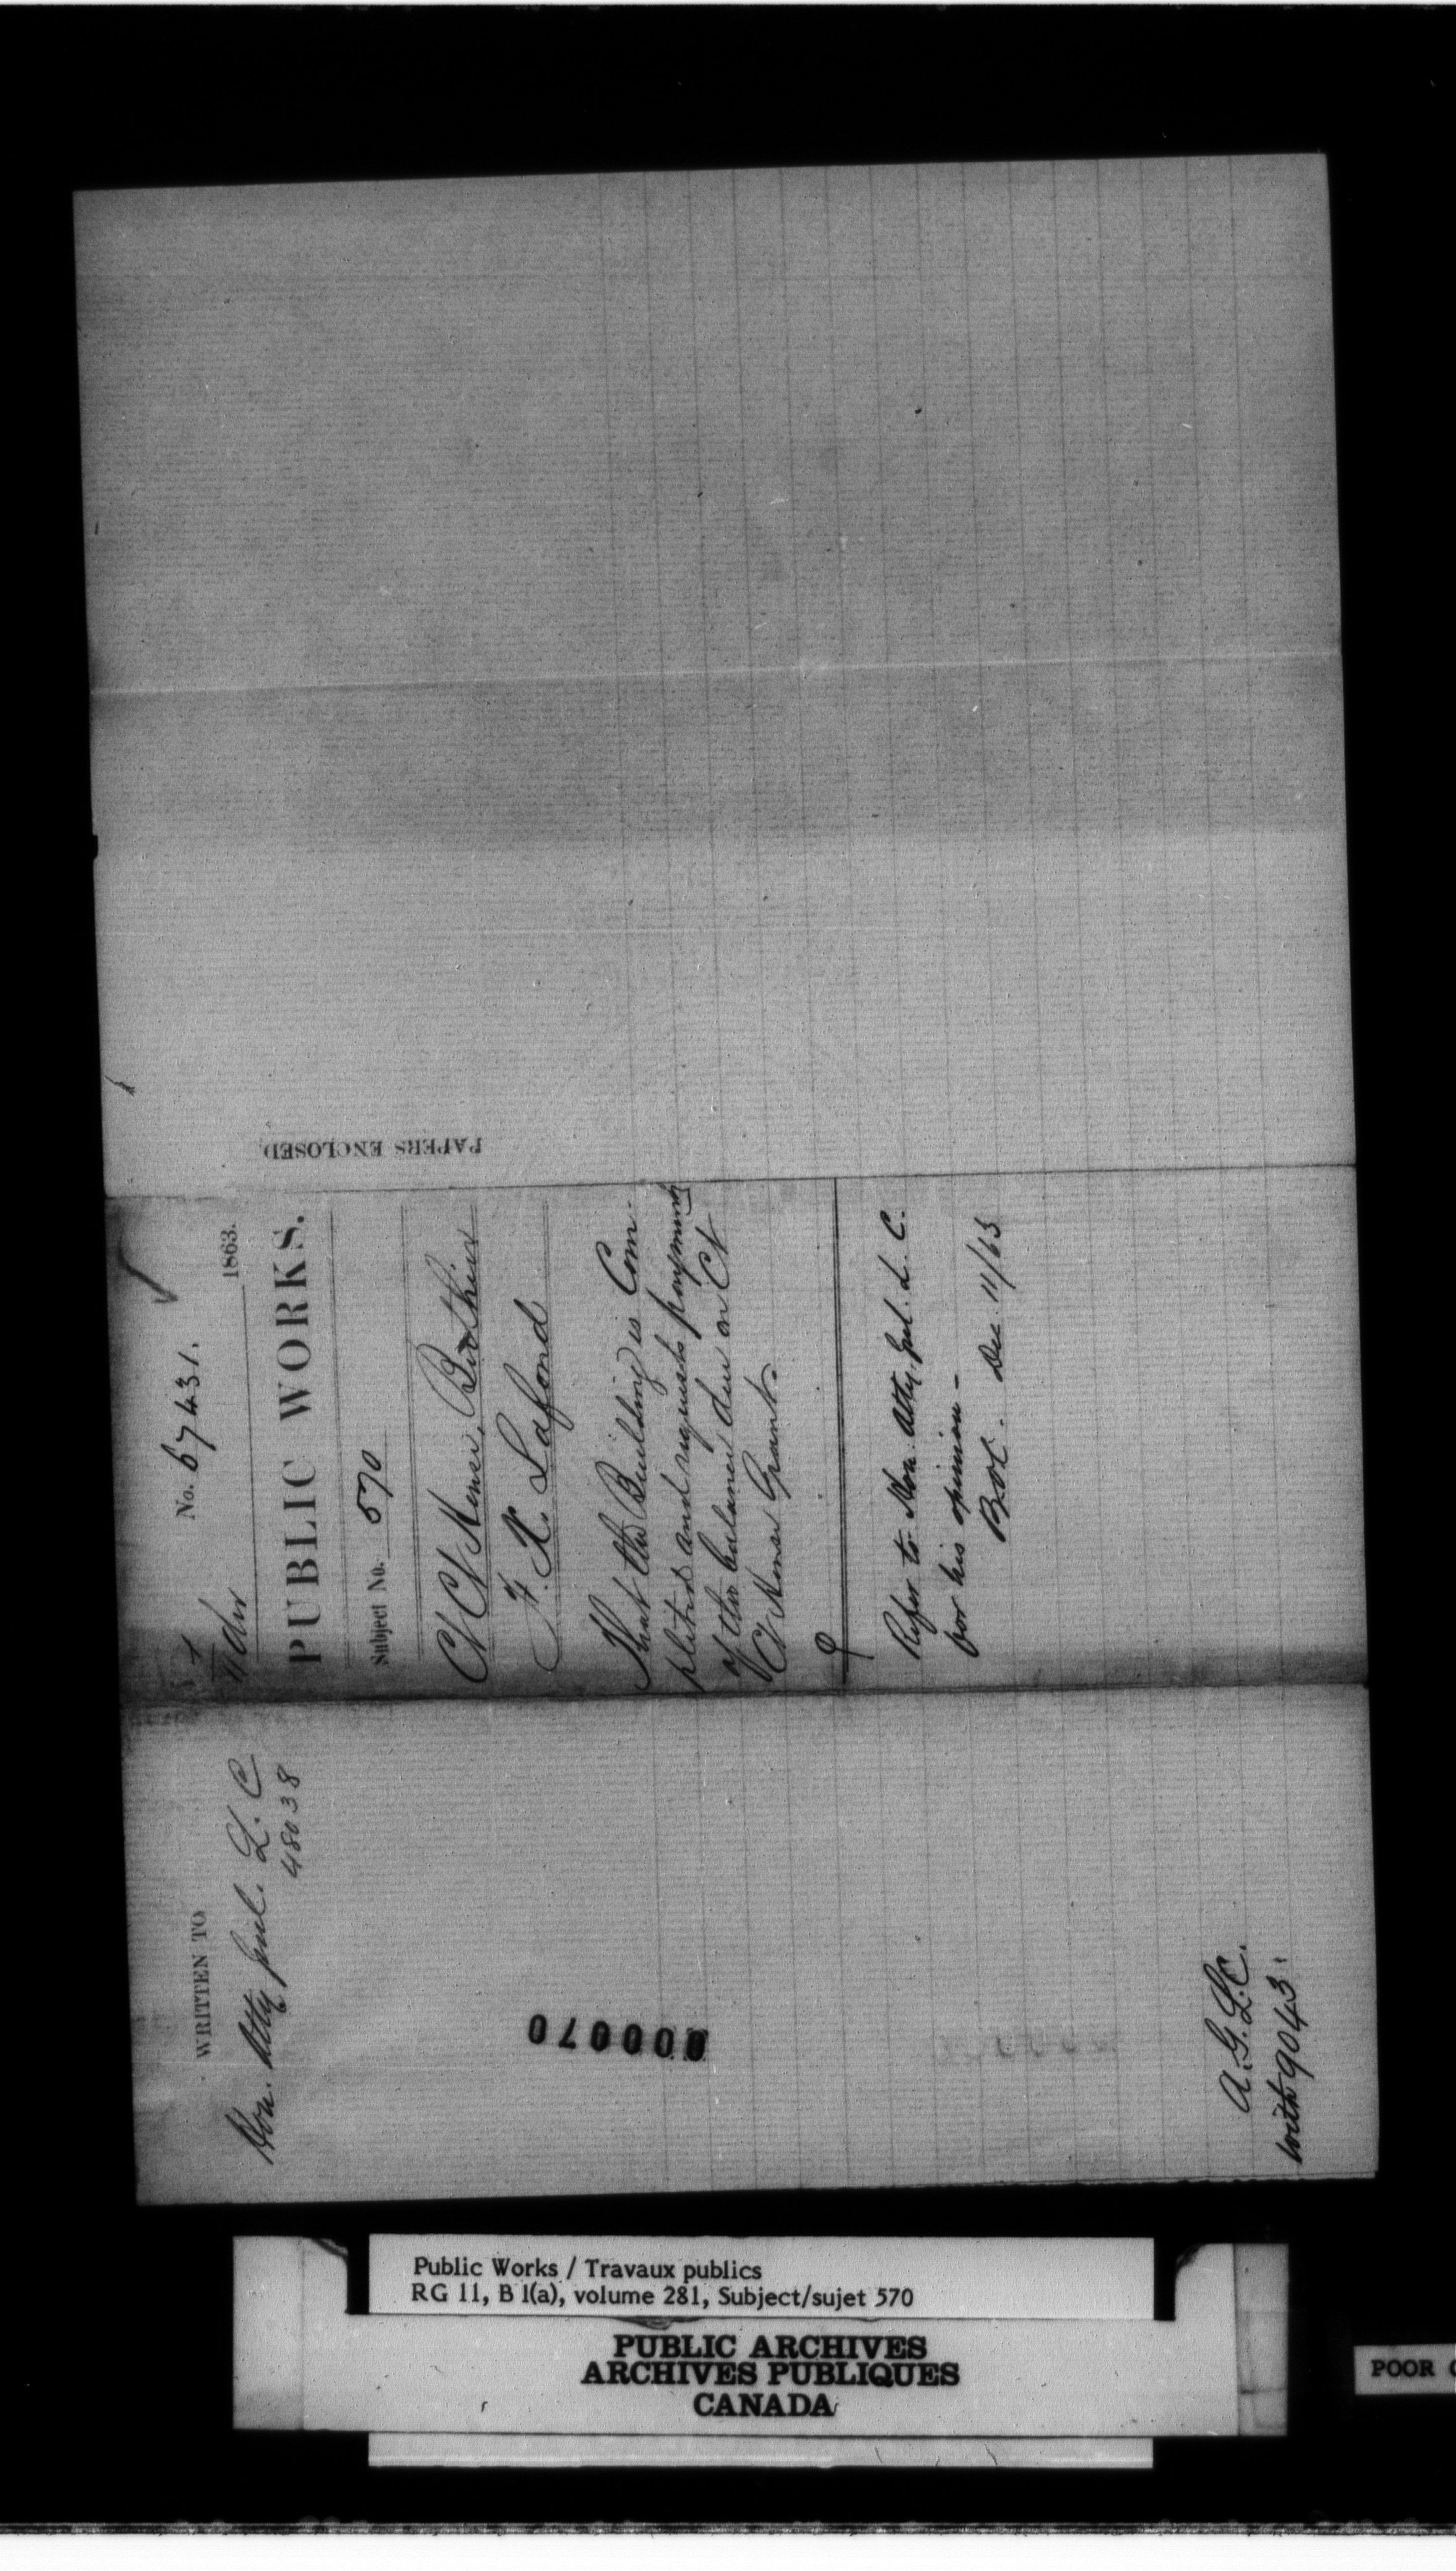 No. 67431.
11 Dec 1863.
PUBLIC WORKS.
Subject No. 570
Ct House, Berthier
F. X. Lafond
That the Building is Com-
pleted and requests payment
of the balance due on Ct
House Grant.
Refer to Hon. Atty. Genl. L. C.
for his opinion -
Dec. 11/63
PAPERS ENCLOSED
WRITTEN TO
Hon. Atty Genl. L. C
48038
000070
A.G.L.C.
with 9043.
Public Works / Travaux publics
RG 11, B 1(a), volume 281, Subject/sujet 570
PUBLIC ARCHIVES
ARCHIVES PUBLIQUES
CANADA
POOR